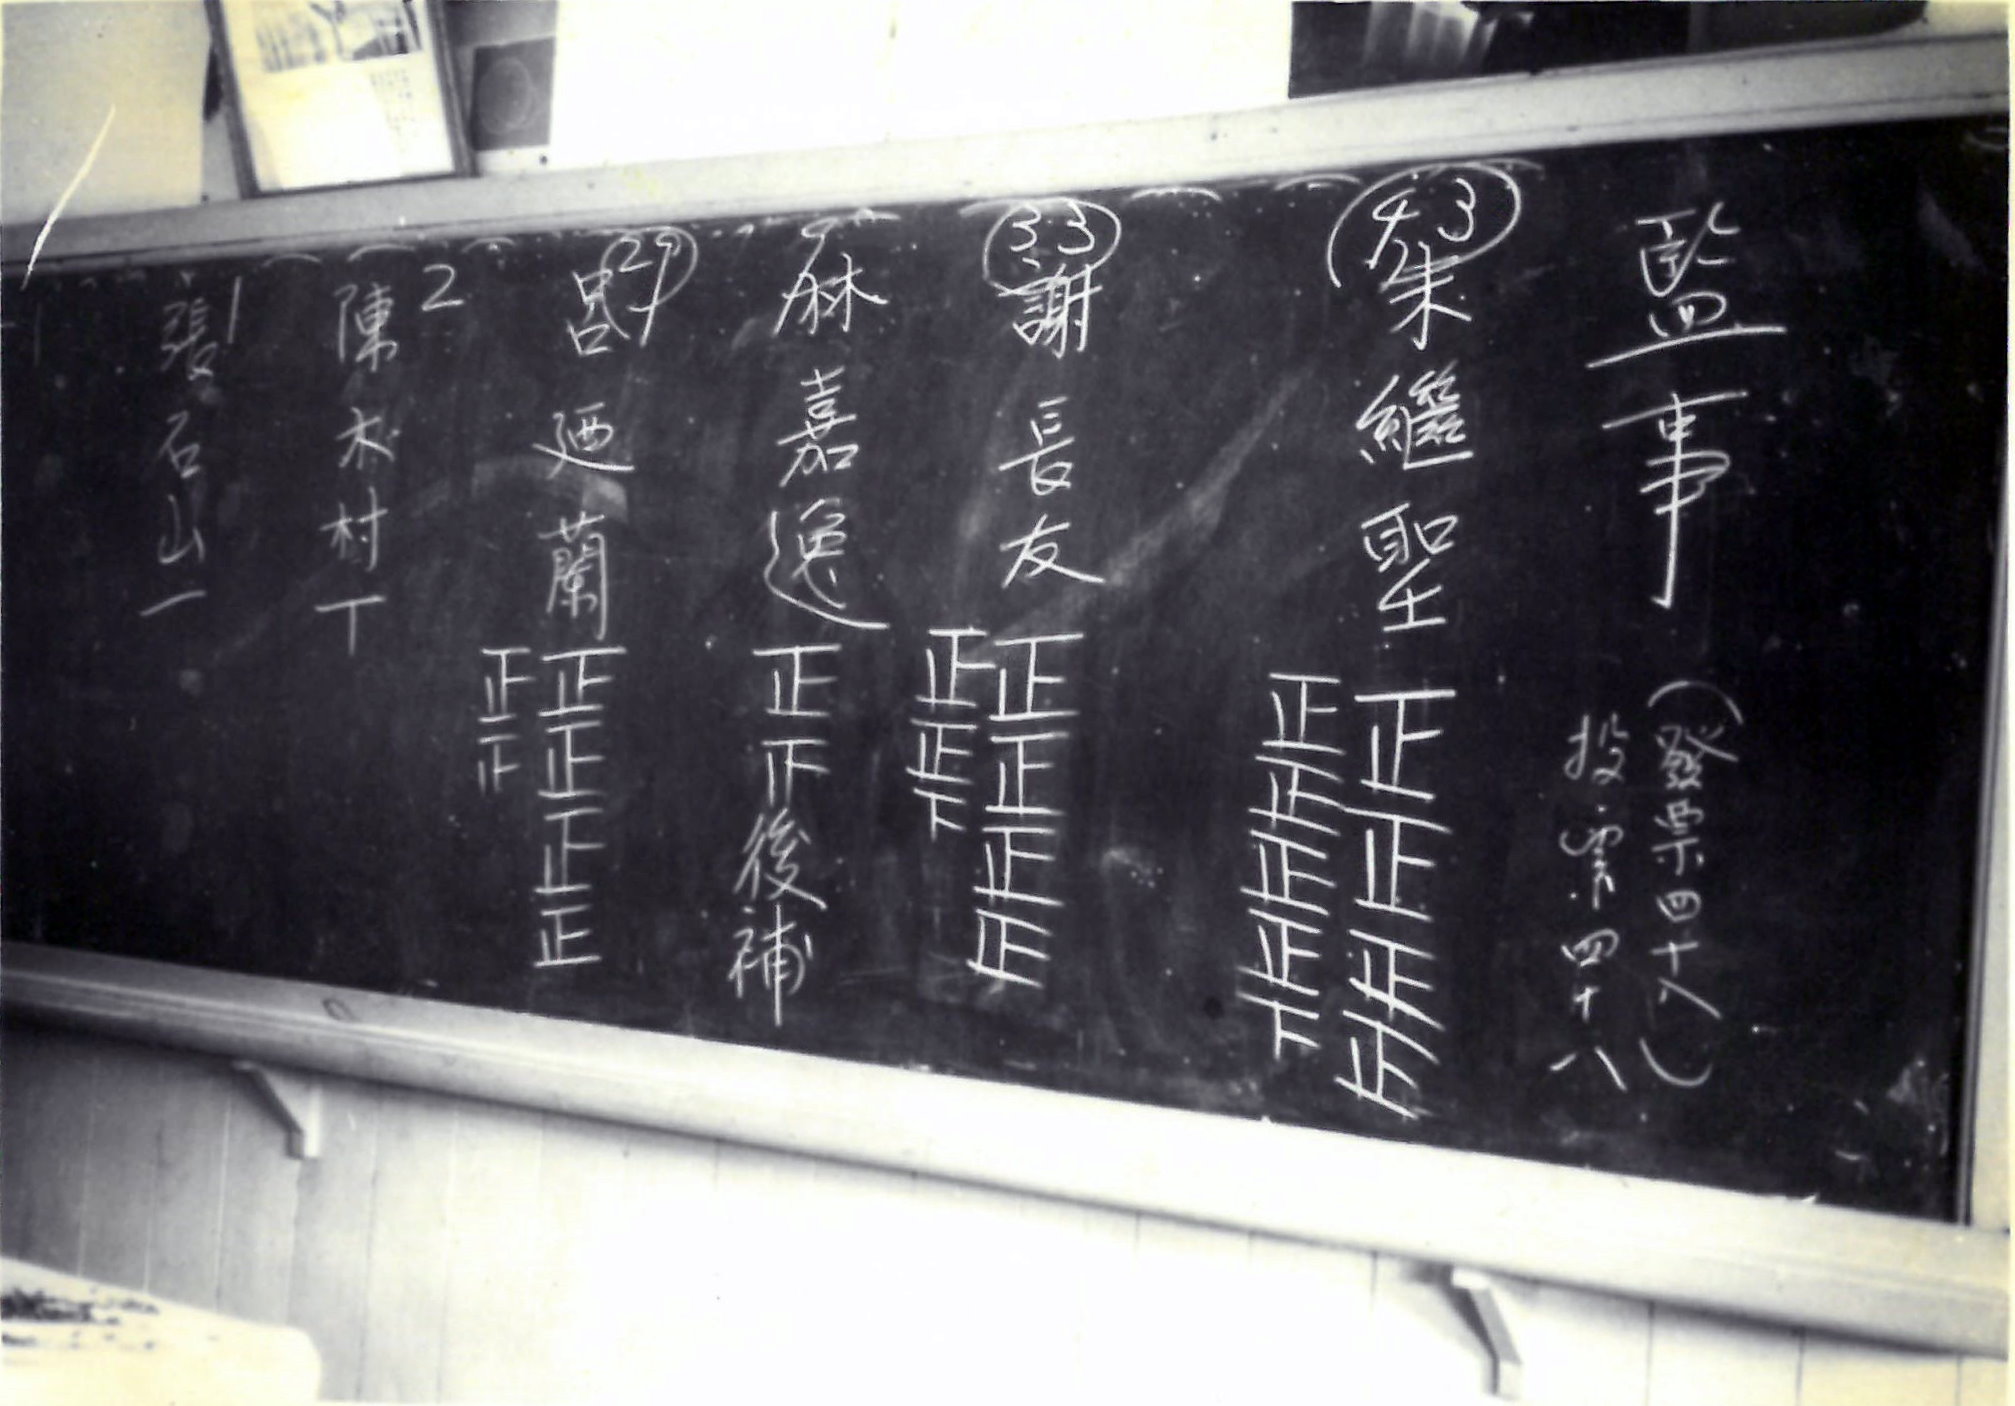 監事
(發票四十八)
投票四十八
43
朱繼聖 正正正正正正正正下
33
謝長友 正正正正正正下
9
林嘉逸 正正後補
29
呂廼蘭 正正正正正正
2
陳木村 丅
1
張石山 一